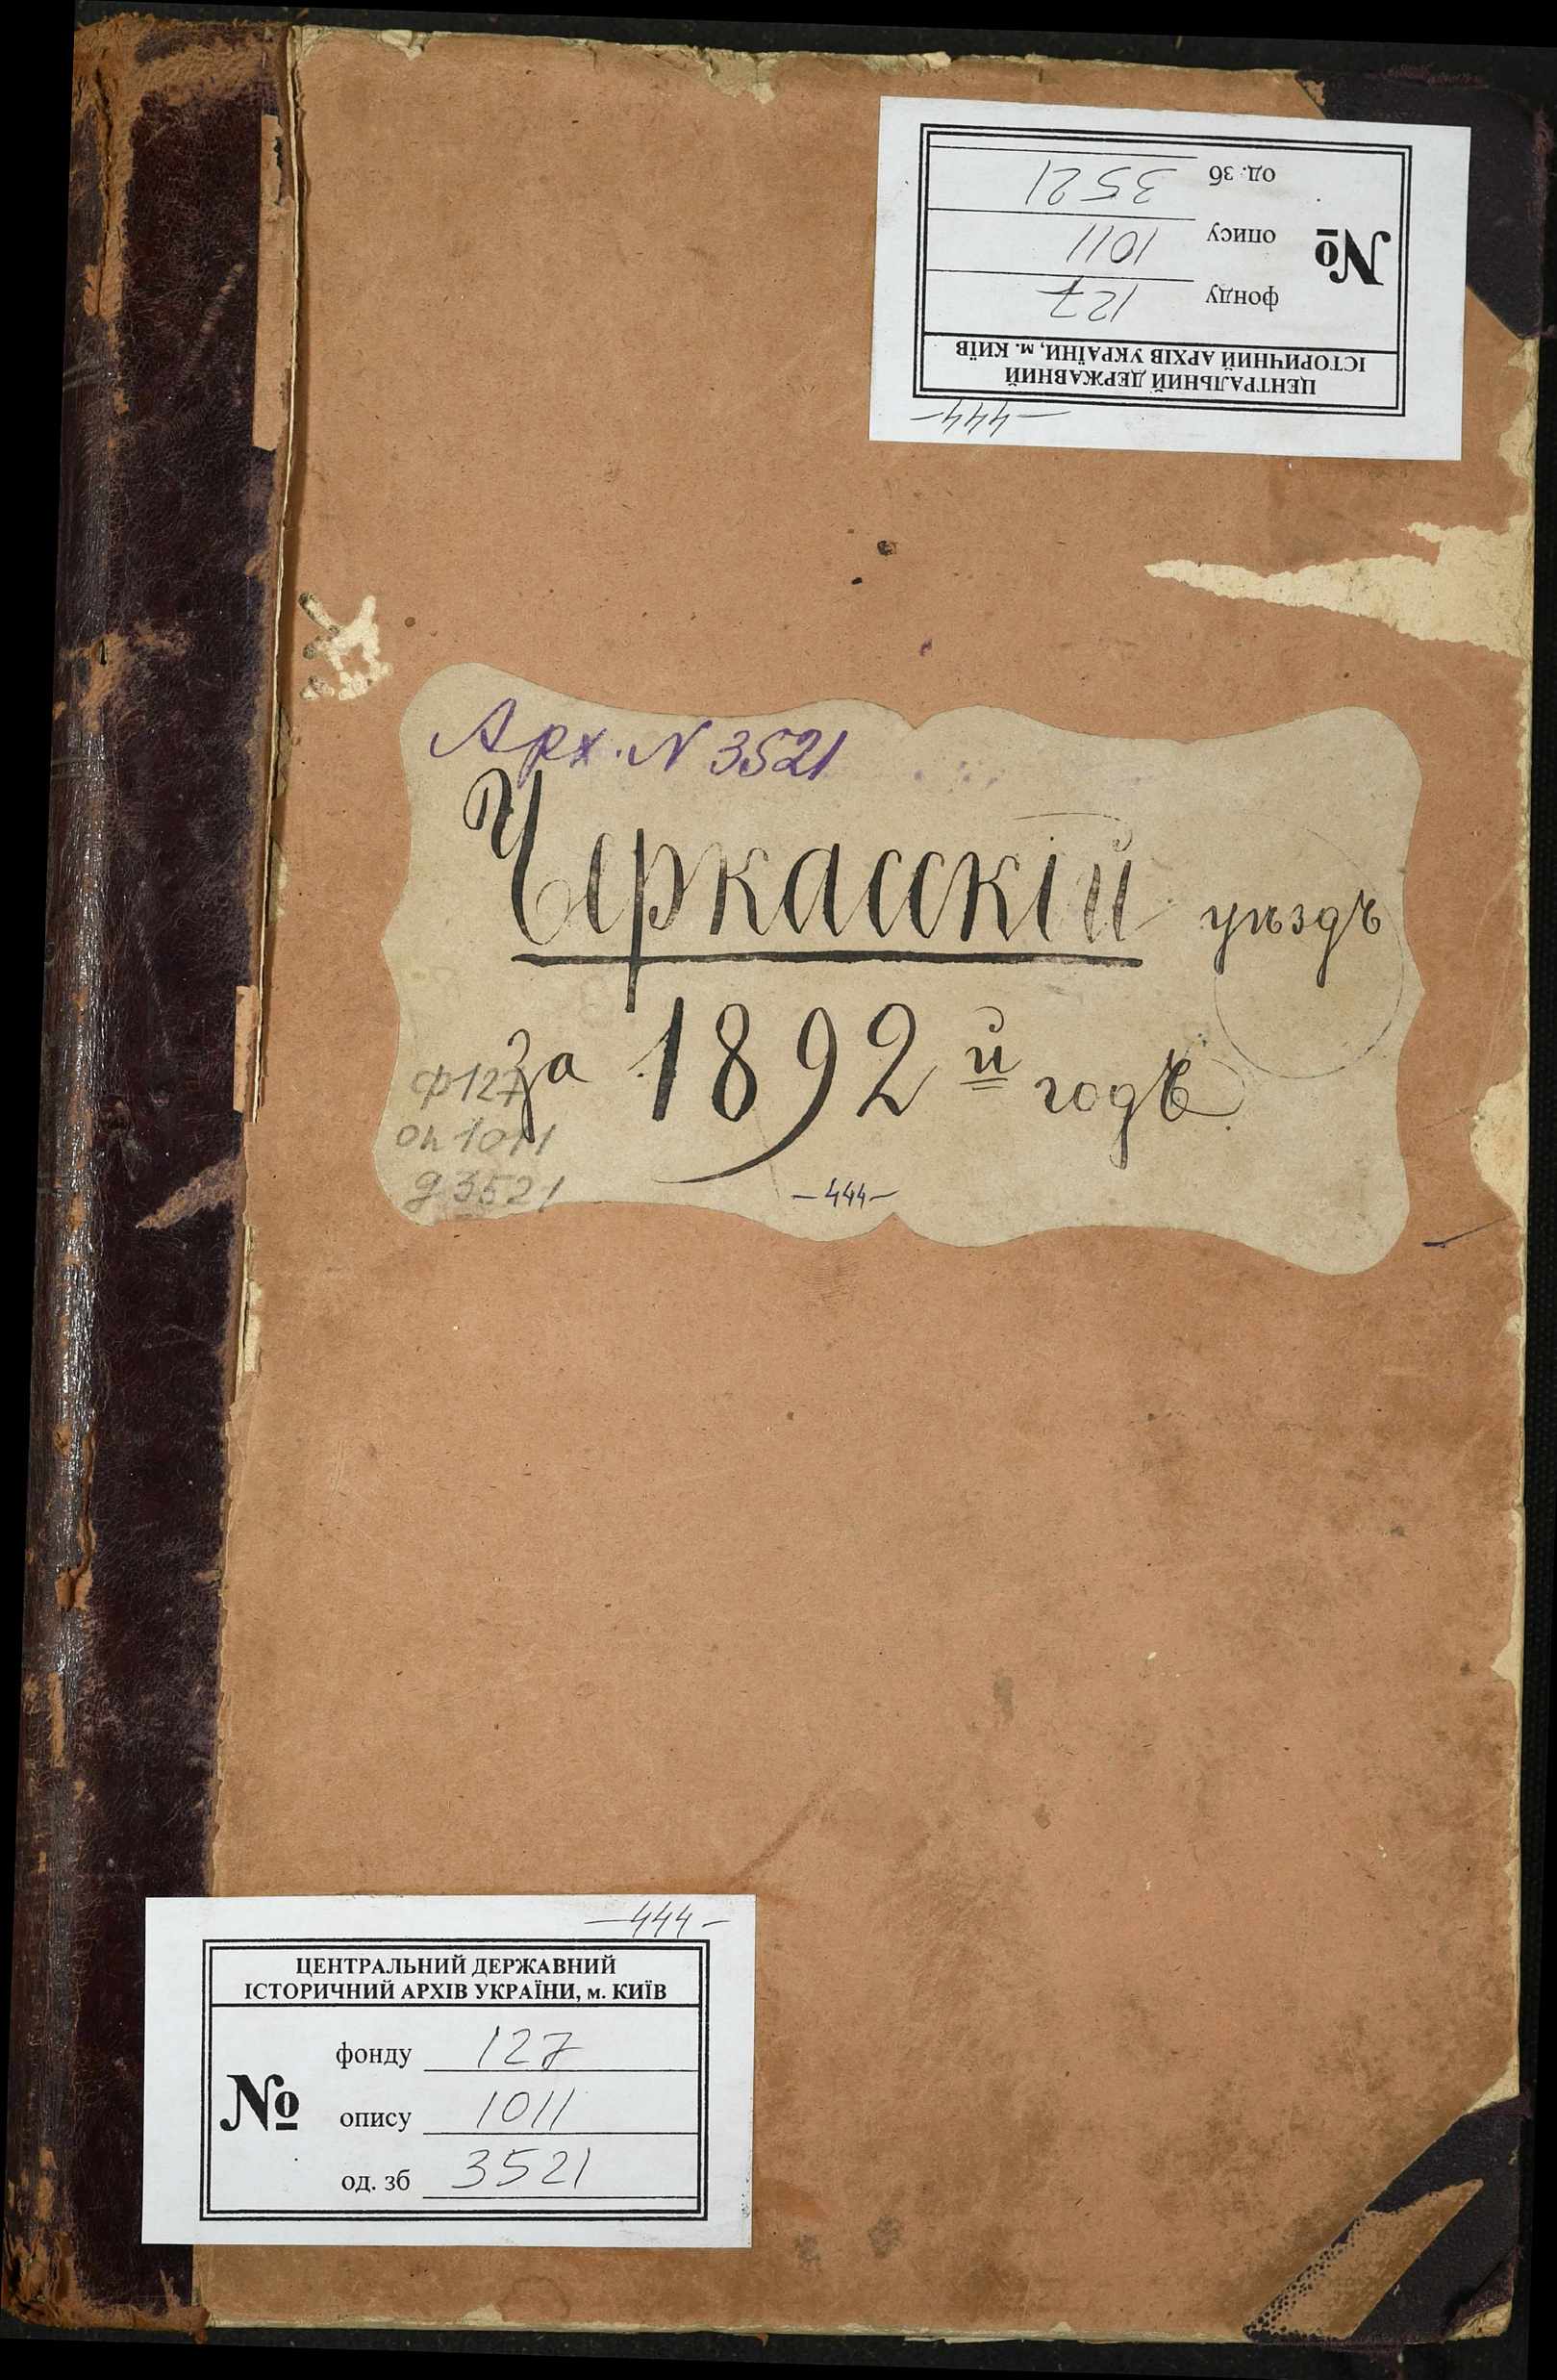 -444-
ЦЕНТРАЛЬНИЙ ДЕРЖАВНИЙ
ІСТОРИЧНИЙ АРХІВ УКРАЇНИ, м. КИЇВ
№
фонду 127
опису 1011
од. зб 3521
Арх. N 3521
Черкасскій уѣздъ
за 1892й годъ
ф 127
оп 1011
д 3521
-444-
-444-
ЦЕНТРАЛЬНИЙ ДЕРЖАВНИЙ
ІСТОРИЧНИЙ АРХІВ УКРАЇНИ, м. КИЇВ
№
фонду 127
опису 1011
од. зб 3521